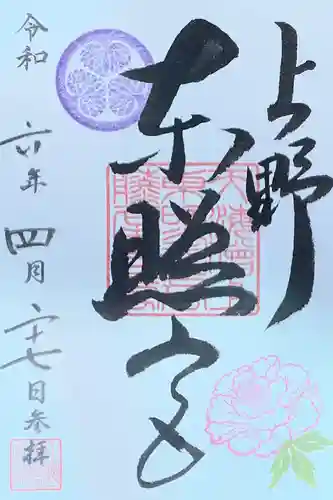 上野
東照宮
令和六年四月二十七日参拝